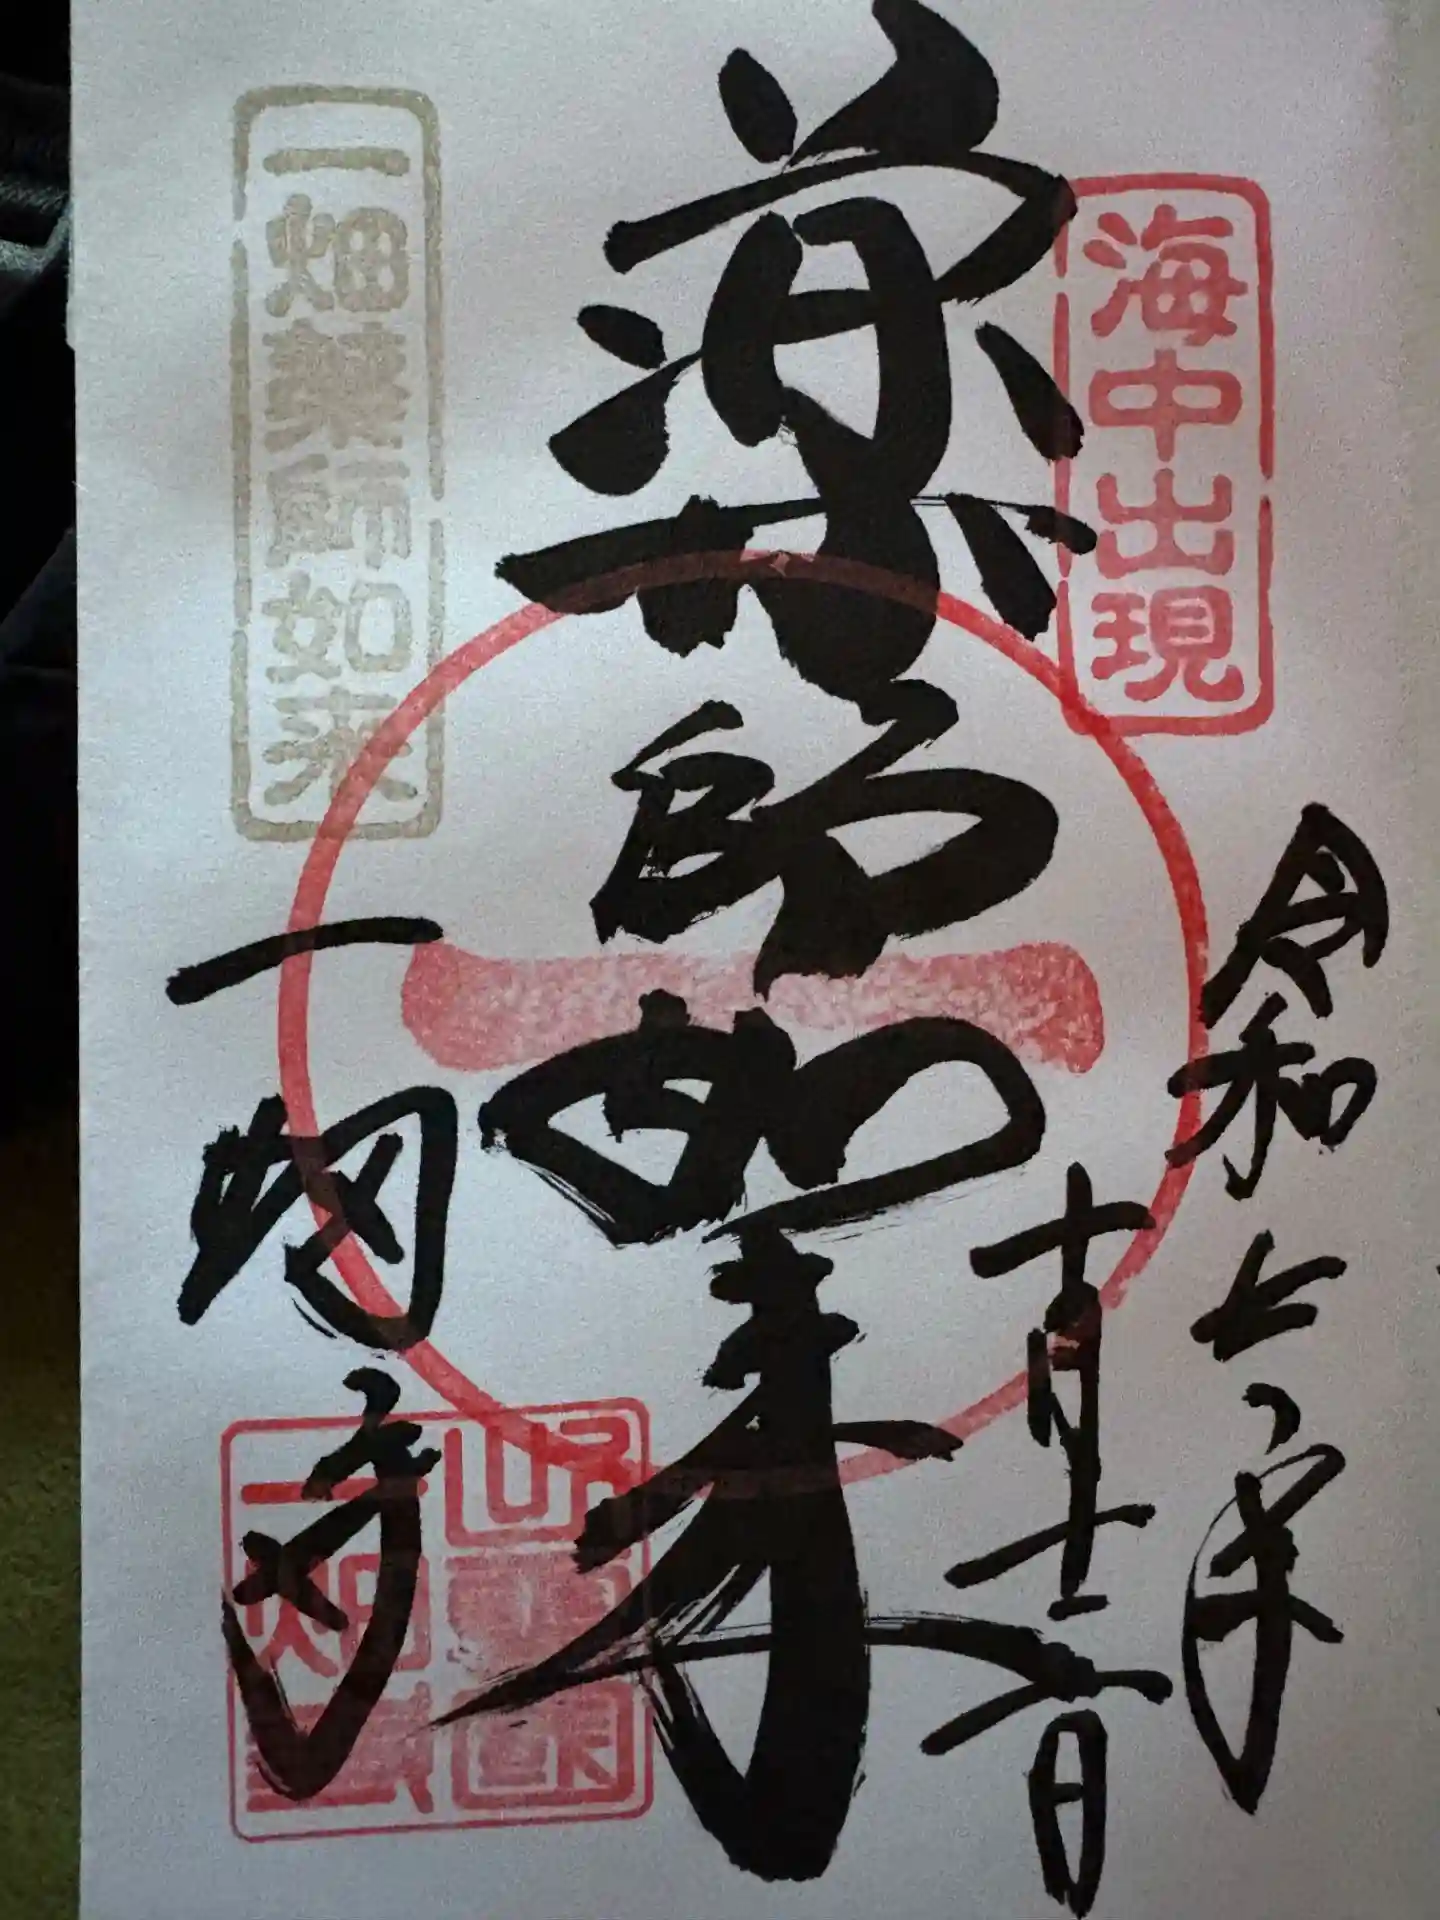 海中出現
令和七年
十月十二日
薬師如来
一
一畑薬師如来
一畑寺